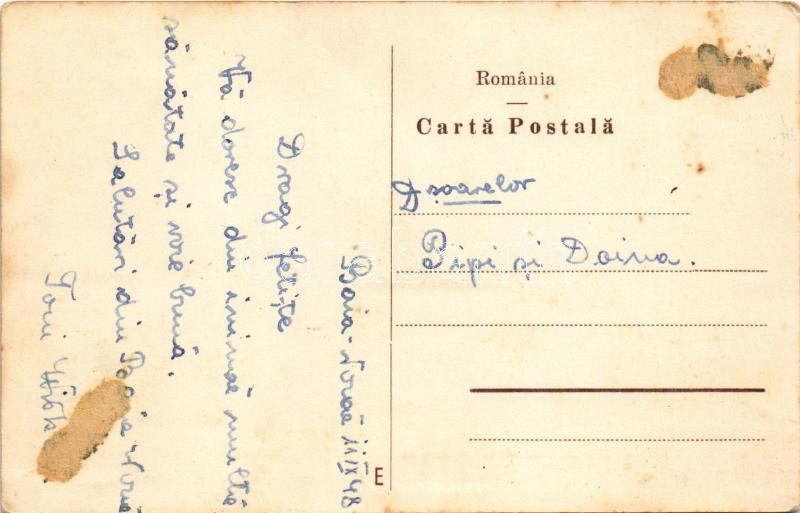 România
Cartă Postală
Dșoarelor
Pipi și Doina.
E
Baia-Nouă 11 IX 48
Dragi fetițe
Vă doresc din inimă multă
sănătate și voie bună.
Salutări din Baia Nouă
Toni